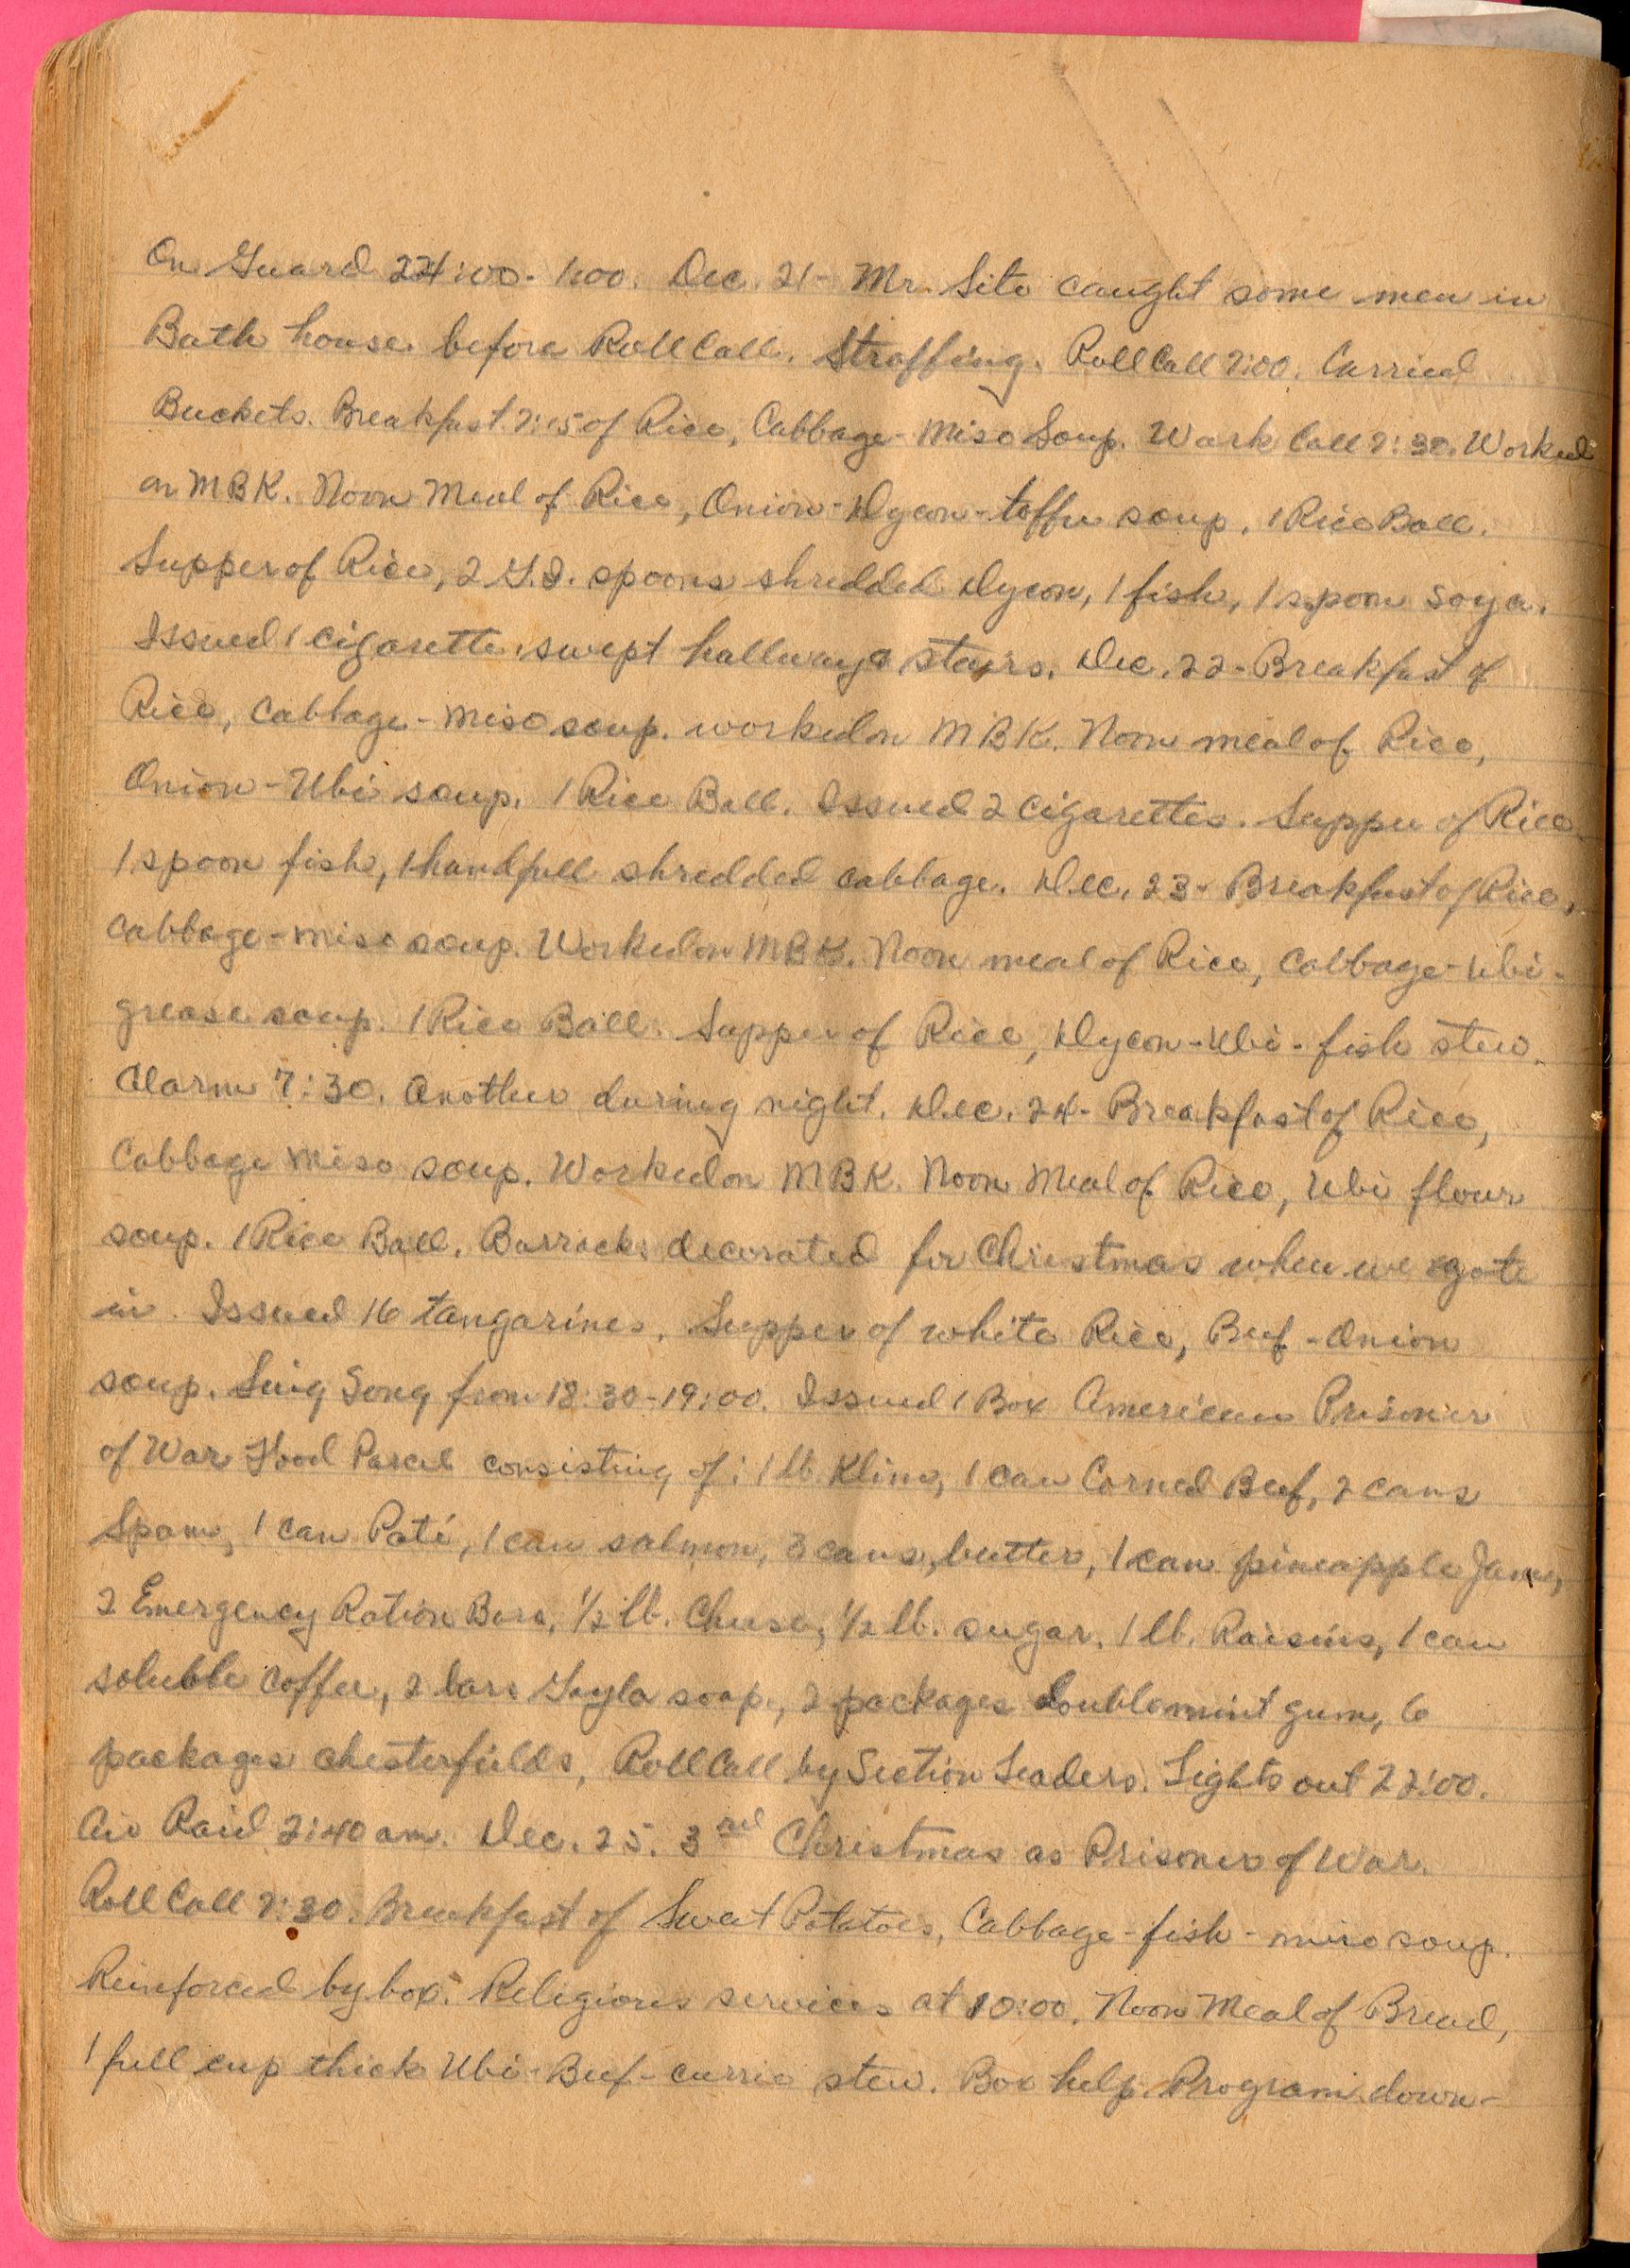 On Guard 24:00-1:00. Dec. 21- Mr. Sito caught some men in
Bath house before Roll Call. Straffing. Roll Call 7:00. Carried
Buckets. Breakfast 7:15 of Rice, Cabbage-Miso Soup. Work Call 7:30. Worked
on MBK. Noon Meal of Rice, Onion-Dycon-toffu soup. 1 Rice Ball.
Supper of Rice, 2 G.I. spoons shredded Dycon, 1 fish, 1 spoon soya.
Issued 1 cigarette. swept hallway & stairs. Dec. 22- Breakfast of
Rice, Cabbage-miso soup. worked on MBK. Noon meal of Rice,
Onion-Ubi soup. 1 Rice Ball. Issued 2 cigarettes. Supper of Rice,
1 spoon fish, 1 handfull shredded cabbage. Dec. 23- Breakfast of Rice,
Cabbage-miso soup. Worked on MBK. Noon meal of Rice, Cabbage-Ubi-
grease soup. 1 Rice Ball. Supper of Rice, Dycon-Ubi-fish stew.
Alarm 7:30. Another during night. Dec. 24- Breakfast of Rice,
Cabbage Miso soup. Worked on MBK. Noon Meal of Rice, Ubi flour
soup. 1 Rice Ball. Barracks decorated for Christmas when we gote
in. Issued 16 tangarines. Supper of white Rice, Beef-Onion
soup. Sing Song from 18:30-19:00. Issued 1 Box American Prisoner
of War Food Parcel consisting of: 1 lb. Klim, 1 can Corned Beef, 2 cans
Spam, 1 can Paté, 1 can salmon, 3 cans, butter, 1 can pineapple Jam,
2 Emergency Ration Bars, 1/2 lb. Cheese, 1/2 lb. sugar, 1 lb. Raisins, 1 can
soluble coffee, 2 bars Gayla soap, 2 packages doublemint gum, 6
packages chesterfields, Roll Call by Section Leaders. Lights out 22:00.
Air Raid 2:40 am. Dec. 25. 3rd Christmas as Prisoner of War.
Roll Call 7:30. Breakfast of Sweet Potatoes, Cabbage-fish-miso soup.
Reinforced by box. Religious services at 10:00. Noon Meal of Bread,
1 full cup thick Ubi-Beef-currie stew. Box help. Program down-